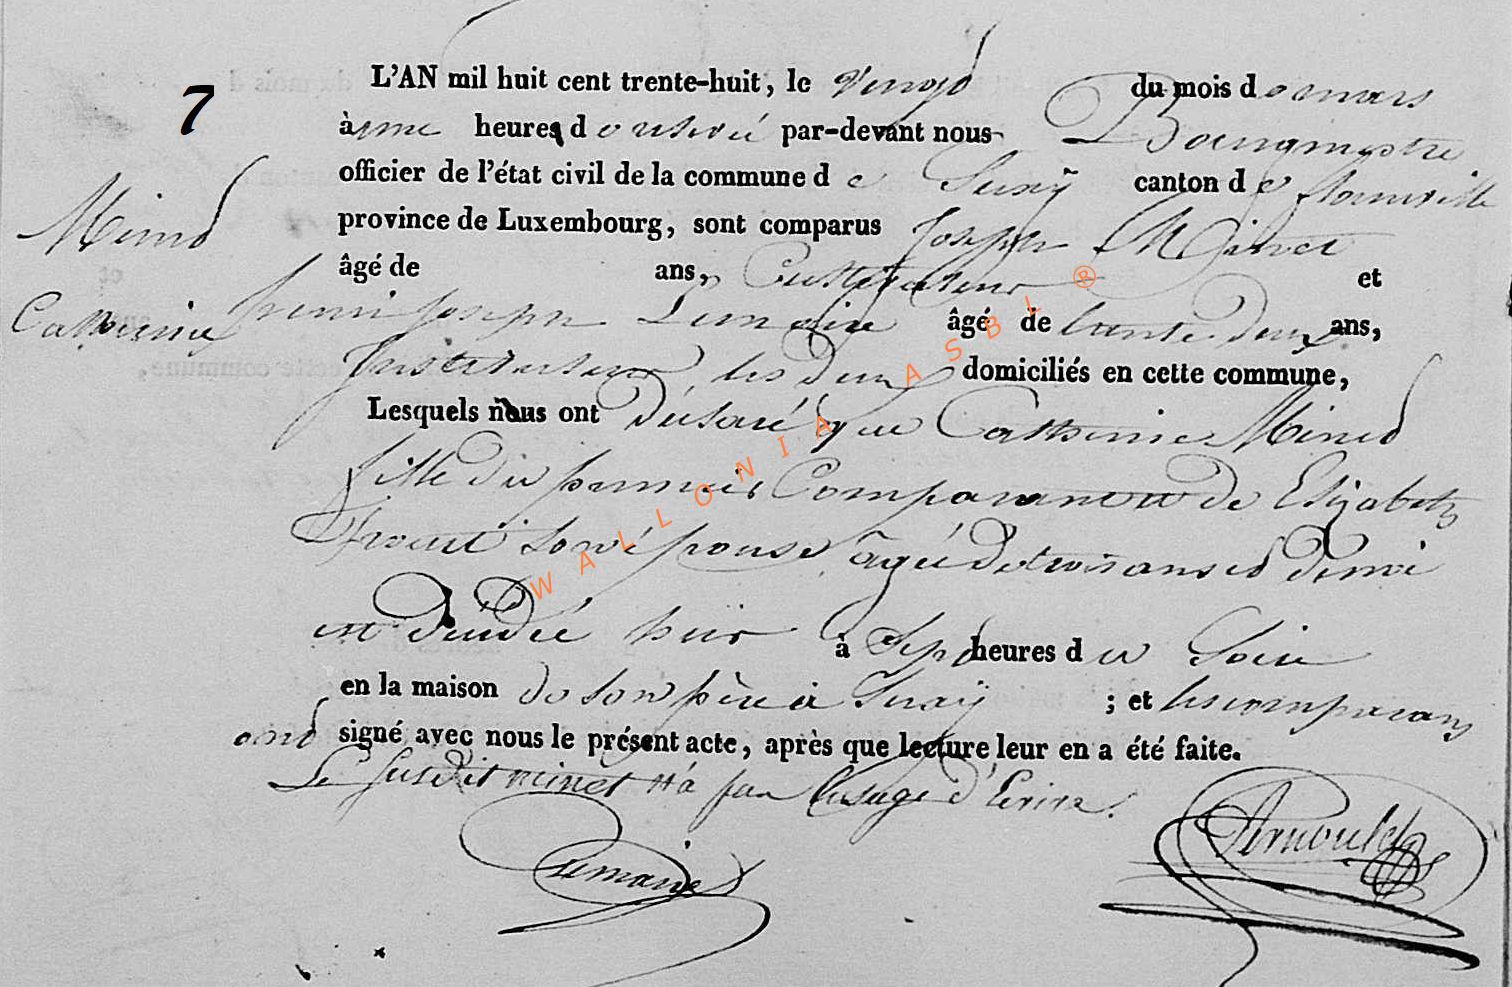 7
L'AN mil huit cent trente-huit, le vingt du mois de mars
à une heures de relevé par-devant nous Bourgmestre
officier de l'état civil de la commune de Suxÿ canton de florenville
Minet
province de Luxembourg, sont comparus Joseph Minet
âgé de ans, Cultivateur et
Catherine
henri Joseph Lemaire âgé de trente deux ans,
Instituteur, les deux domiciliés en cette commune,
Lesquels nous ont déclaré que Catherine Minet
fille du premier Comparant et de Elizabeth
son épouse, agée de trois ans et demi
est décédée hier à Sept heures du Soir
en la maison de son père à Suxÿ ; et les comparans
ont signé avec nous le présent acte, après que lecture leur en a été faite.
Le susdit minet n'a pas l'usage d'Ecrire.
Lemaire
Arnould
WALLONIA ASBL ®